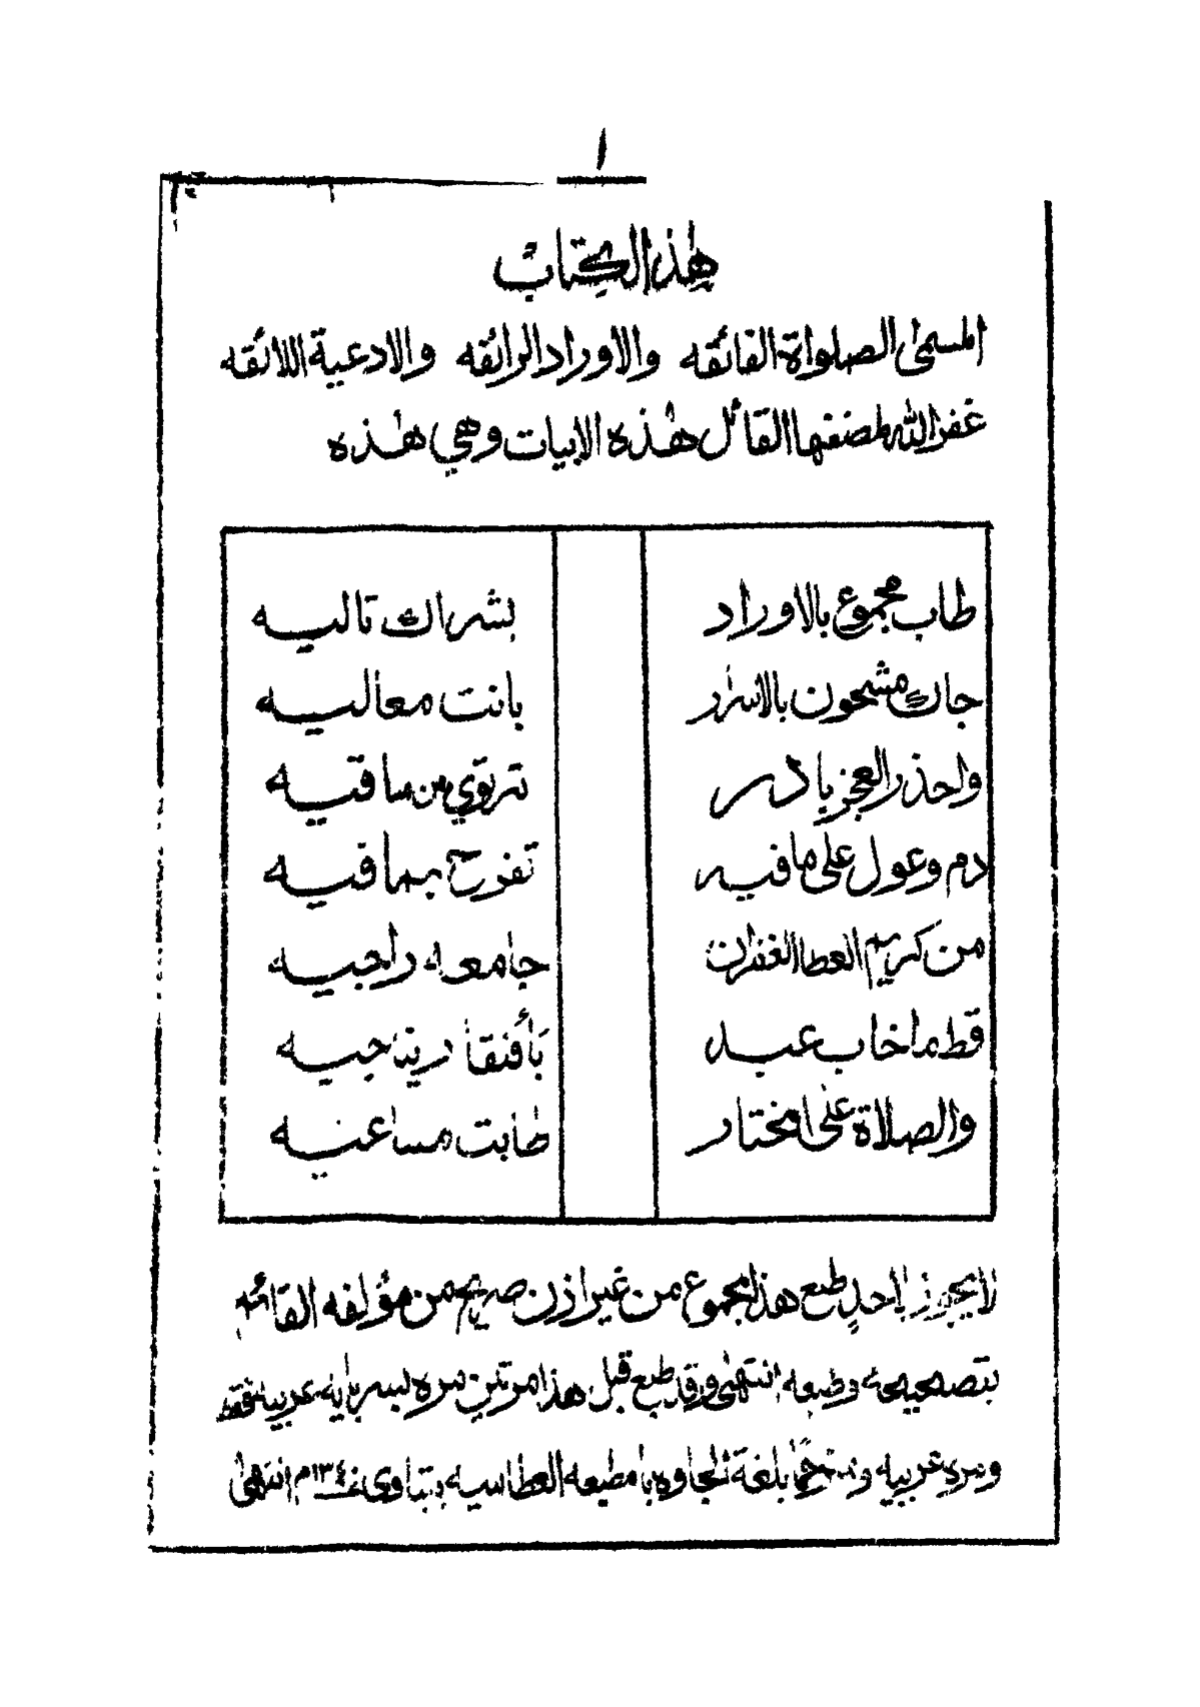 ١
هذا الكتاب
المسمى الصلواة الفائقه والاوراد الرائقه والادعية اللائقه
غفر الله لمصنفها القائل هذه الابيات وهي هذه
طاب مجموع بالاوراد بشراك تاليه
جاك مشحون بالاسرار بانت معاليه
واحذر العجز بادر ترتوي من ساقيه
دم وعول على مافيه تفرح بما فيه
من كريم العطا الغفران جامعه راجيه
قط ماخاب عبد
والصلاة على المختار طابت مساعيه
لا يجوز لاحد طبع هذا المجموع من غير اذن صريح من مؤلفه القائم
بتصحيحه وطبعه انتهى وقد طبع قبل هذا مرتين مره بسربايه عربيه فقط
ومره عربيه بلغة الجاوه با مطبعه العطاسيه بتاوي ١٣٤٠م انتهى